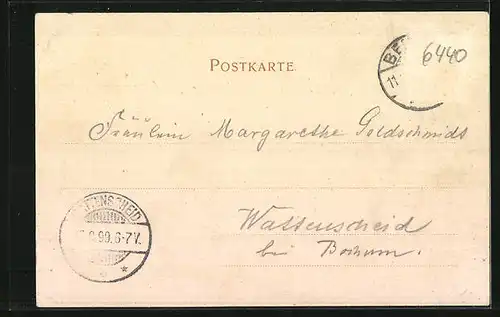 POSTKARTE.
6440
Fräulein Margarethe Goldschmidt
Wattenscheid
bei Bochum.
WATTENSCHEID
99.6-7V.